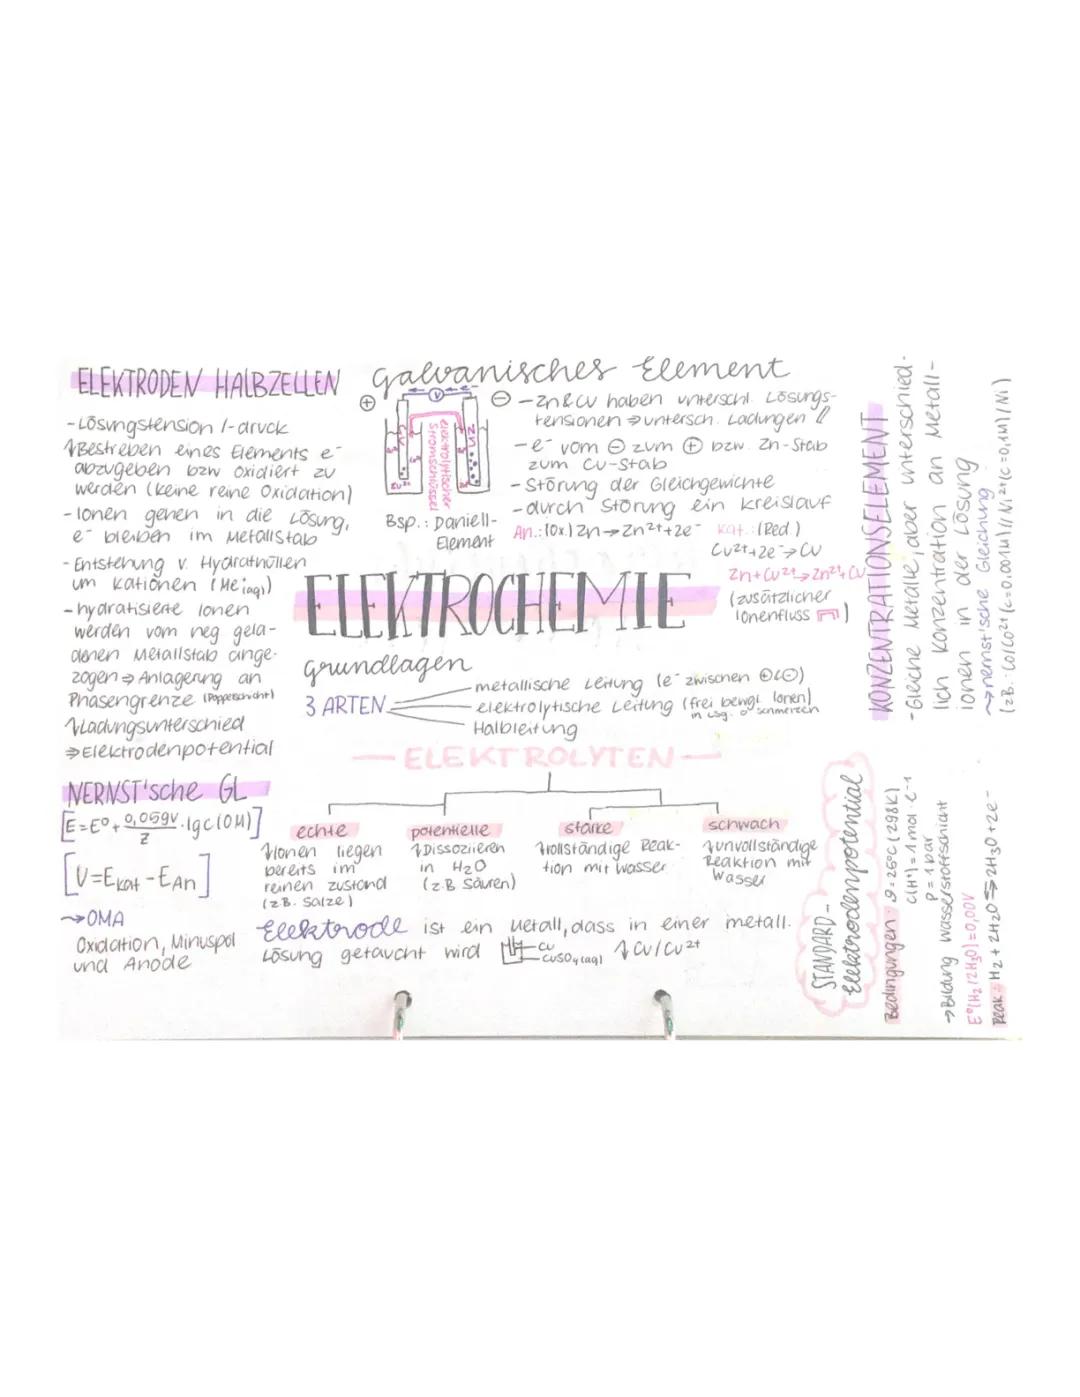 ELEKTRODEN HALBZELLEN
- Lösungstension /-druck
↳ Bestreben eines Elements e⁻
abzugeben bzw oxidiert zu
werden (keine reine Oxidation)
- Ionen gehen in die Lösung,
e⁻ bleiben im Metallstab
- Entstehung v. Hydrathüllen
um Kationen (Me⁺(aq))
- hydratisierte Ionen
werden vom neg gela-
denen Metallstab ange-
zogen ⇒ Anlagerung an
Phasengrenze (Doppelschicht)
↳ Ladungsunterschied
⇒ Elektrodenpotential
NERNST'sche GL
[E=E⁰+ 0,059V/z · lg c(OM)]
[U=EKat - EAn]
→ OMA
Oxidation, Minuspol
und Anode
Galvanisches Element
⊕ V ⊖
Cu
elektrolytischer
Stromschlüssel
Zn
Bsp.: Daniell-
Element
- Zn & Cu haben unterschl. Lösungs-
tensionen ⇒ untersch. Ladungen
- e⁻ vom ⊖ zum ⊕ bzw. Zn-Stab
zum Cu-Stab
- Störung der Gleichgewichte
- durch Störung ein Kreislauf
An.: (Ox.) Zn → Zn²⁺+2e⁻ Kat.: (Red.)
Cu²⁺+2e⁻ → Cu
Zn+Cu²⁺ → Zn²⁺+Cu
(zusätzlicher
Ionenfluss)
ELEKTROCHEMIE
grundlagen
3 ARTEN
- metallische Leitung (e⁻ zwischen ⊕ & ⊖)
- elektrolytische Leitung (frei bewgl. Ionen)
in Lsg. o. Schmelzen
- Halbleitung
— ELEKTROLYTEN —
echte
↳ Ionen liegen
bereits im
reinen Zustand
(z.B. Salze)
potentielle
↳ Dissoziieren
in H₂O
(z.B. Säuren)
starke
↳ vollständige Reak-
tion mit Wasser
schwach
↳ unvollständige
Reaktion mit
Wasser
Elektrode ist ein Metall, dass in einer metall.
Lösung getaucht wird Cu CuSO₄(aq) ↳ Cu/Cu²⁺
KONZENTRATIONSELEMENT
- Gleiche Metalle, aber unterschied-
lich Konzentration an Metall-
ionen in der Lösung
→ nernst'sche Gleichung
(z.B.: Co/Co²⁺ (c=0.001M)//Ni²⁺(c=0,1M)/Ni)
STANDARD-
Elektrodenpotential
Bedingungen: ϑ=25°C (298K)
c(H⁺)=1mol·L⁻¹
p=1bar
→ Bildung Wasserstoffschicht
E⁰(H₂/2H₃O)=0,00V
Reak.: H₂+2H₂O ⇌ 2H₃O+2e⁻